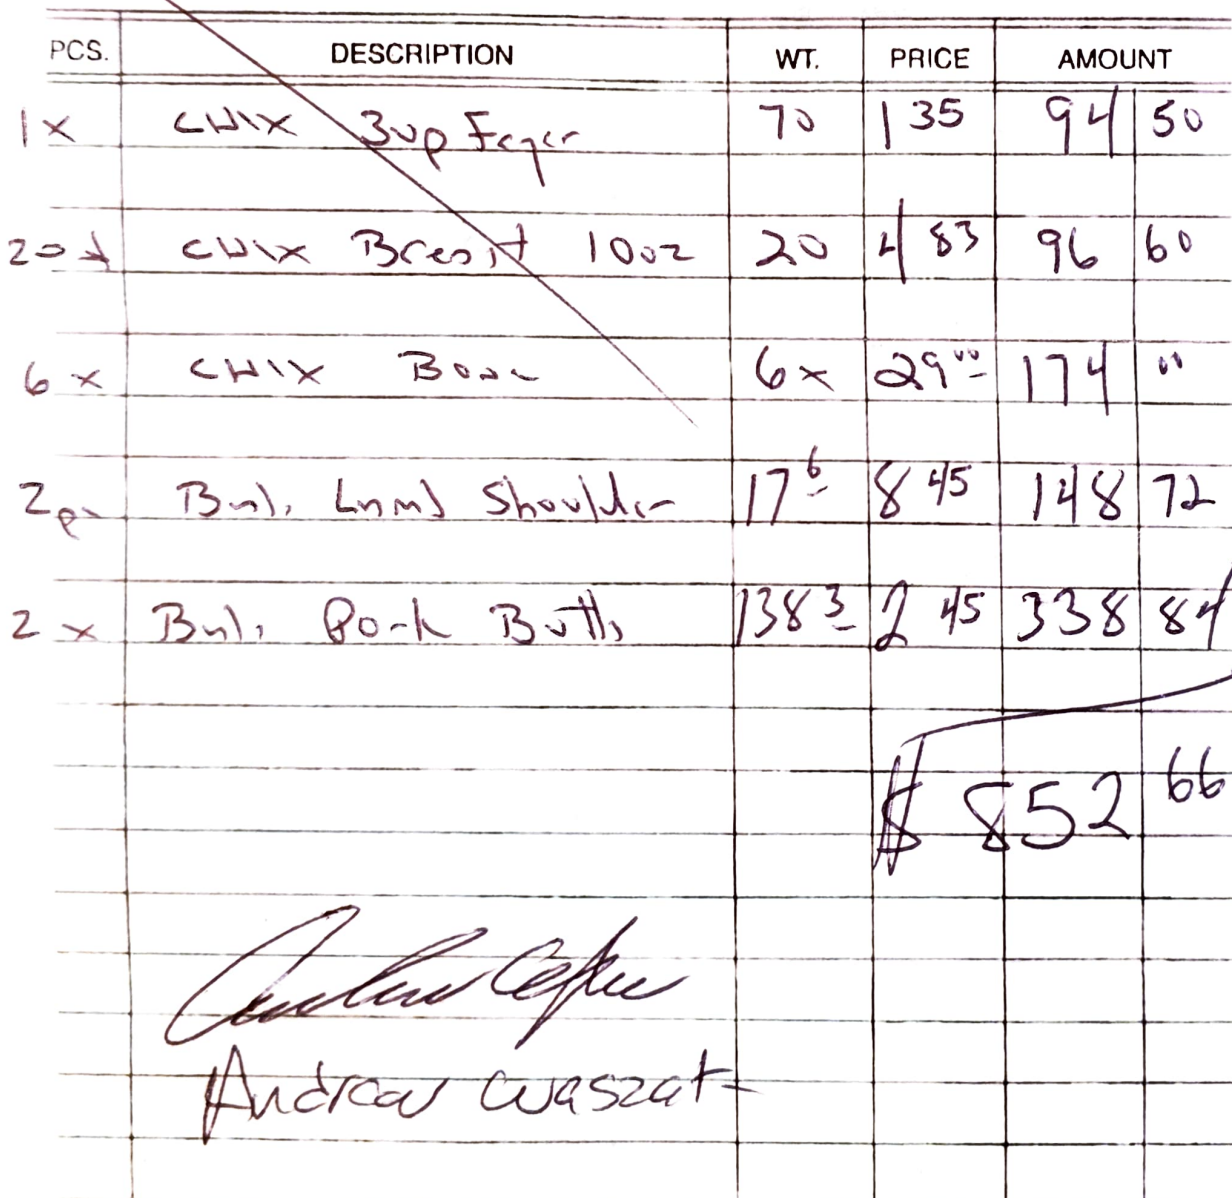 PCS. DESCRIPTION WT. PRICE AMOUNT
1x CHIX 3up Fryer 70 1 35 94 50
20# CHIX Breast 10oz 20 4 83 96 60
6x CHIX Bone 6x 29 00 174 00
2pc Bnls. Lamb Shoulder 17 6 8 45 148 72
2x Bnls Pork Butts 138 3 2 45 338 84
$ 852 66
Andrew